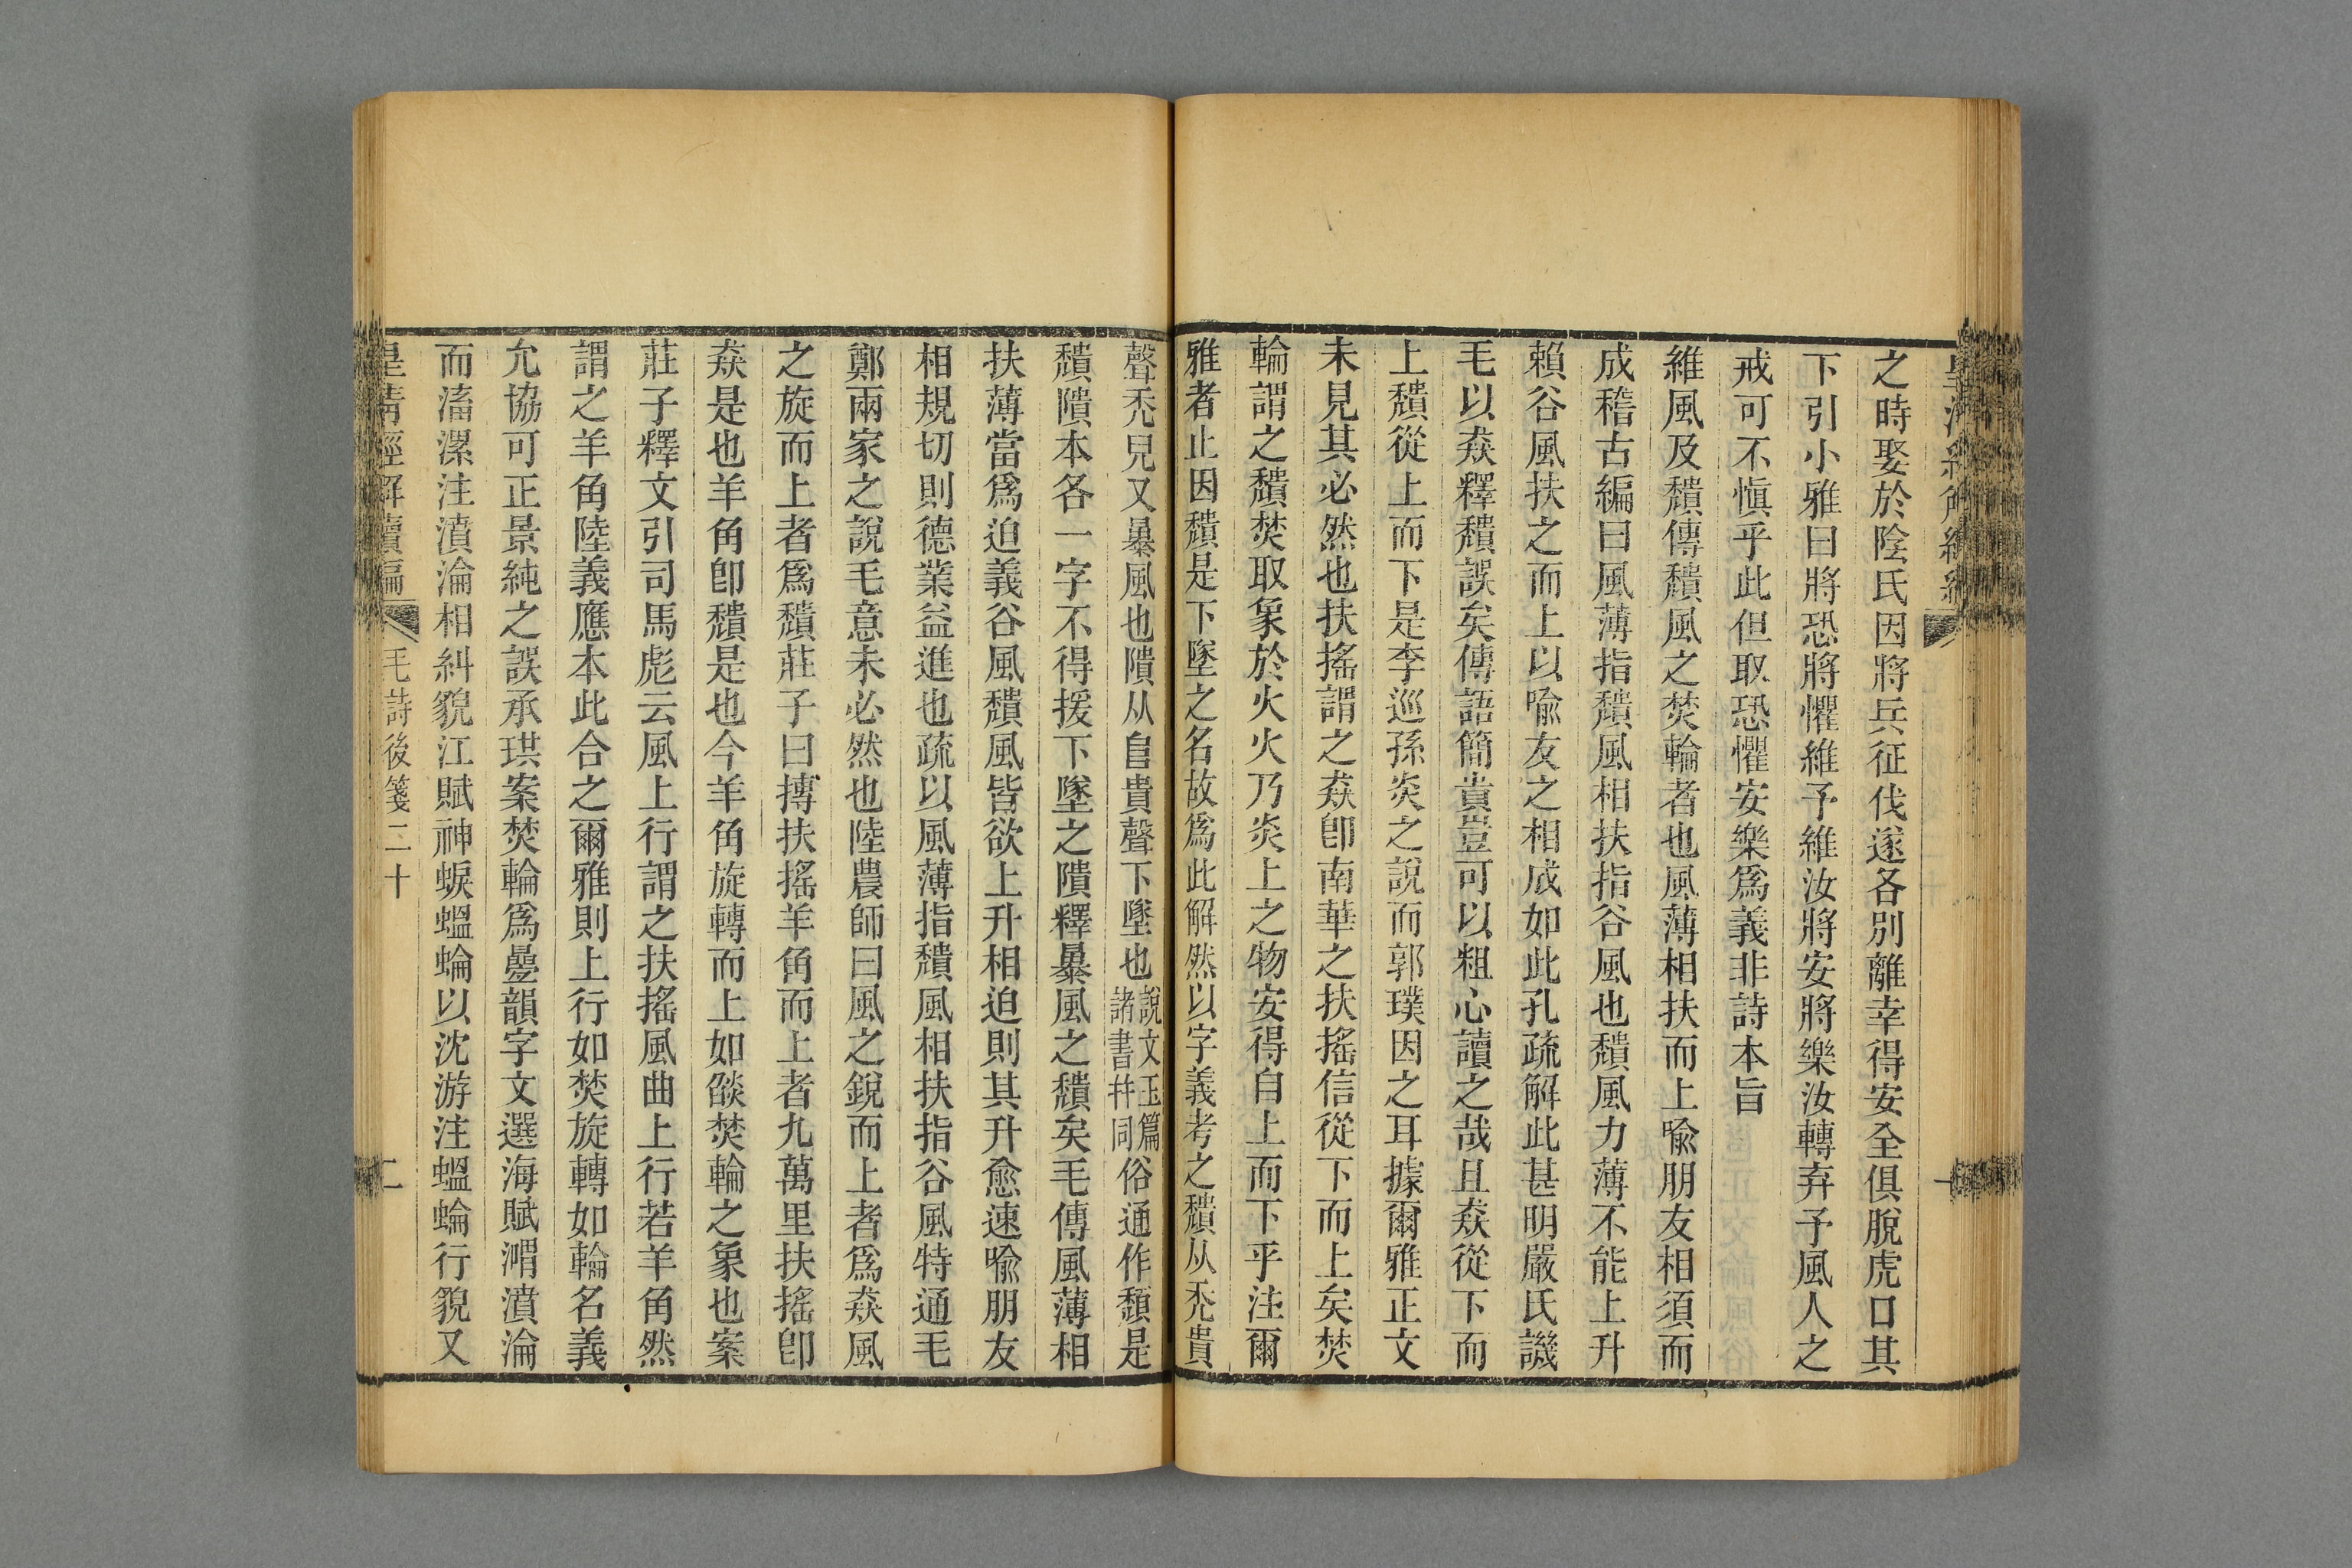 之時娶於陰氏因將兵征伐遂各別離幸得安全俱脫虎口其
下引小雅曰將恐將懼維予維汝將安將樂汝轉弃予風人之
戒可不慎乎此但取恐懼安樂爲義非詩本旨
維風及穨傳穨風之焚輪者也風薄相扶而上喩朋友相須而
成稽古編曰風薄指穨風相扶指谷風也穨風力薄不能上升
賴谷風扶之而上以喩友之相成如此孔疏解此甚明嚴氏譏
毛以猋釋穨誤矣傳語簡貴豈可以粗心讀之哉且猋從下而
上穨從上而下是李巡孫炎之說而郭璞因之耳據爾雅正文
未見其必然也扶搖謂之猋卽南華之扶搖信從下而上矣焚
輪謂之穨焚取象於火火乃炎上之物安得自上而下乎注爾
雅者止因穨是下墜之名故爲此解然以字義考之穨从禿貴
聲禿皃又暴風也隤从𨸏貴聲下墜也說文玉篇諸書幷同俗通作頽是
穨隤本各一字不得援下墜之隤釋暴風之穨矣毛傳風薄相
扶薄當爲迫義谷風穨風皆欲上升相迫則其升愈速喩朋友
相規切則德業益進也疏以風薄指穨風相扶指谷風特通毛
鄭兩家之說毛意未必然也陸農師曰風之銳而上者爲猋風
之旋而上者爲穨莊子曰摶扶搖羊角而上者九萬里扶搖卽
猋是也羊角卽穨是也今羊角旋轉而上如燄焚輪之象也案
莊子釋文引司馬彪云風上行謂之扶搖風曲上行若羊角然
謂之羊角陸義應本此合之爾雅則上行如焚旋轉如輪名義
允協可正景純之誤承珙案焚輪爲疊韻字文選海賦㵒濆淪
而滀漯注濆淪相糾貌江賦神蜧蝹蜦以沈游注蝹蜦行貌又
皇淸經解續編
毛詩後箋二十
二